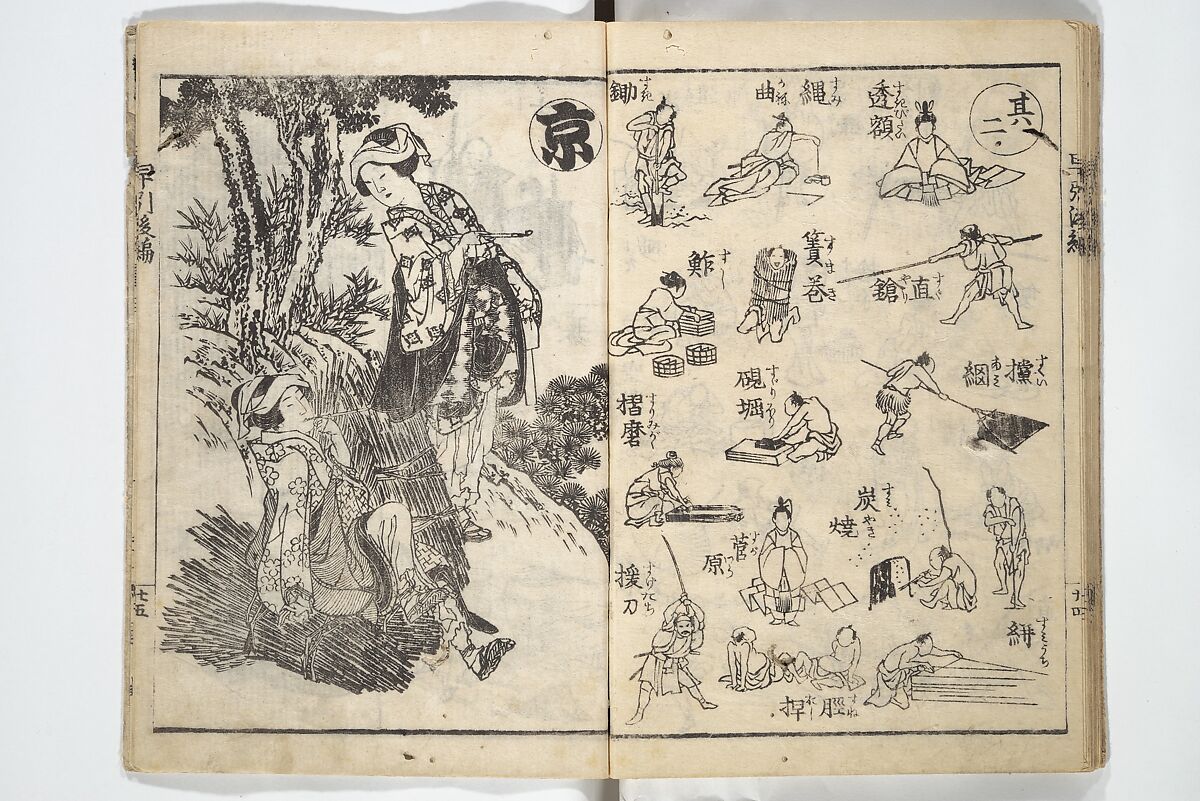 其二
透額 すきびたい
縄 すみ
曲 かね
鋤 すき
直鎗 すぐやり
簀巻 すまき
鮓 すし
攩網 すいあみ
硯堀 すゞりほり
摺磨 すりみがく
炭焼 すみやき
菅原 すがはら
援刀 すけだち
絣 すみうち
脛押 すねおし
京
早引後編
七五